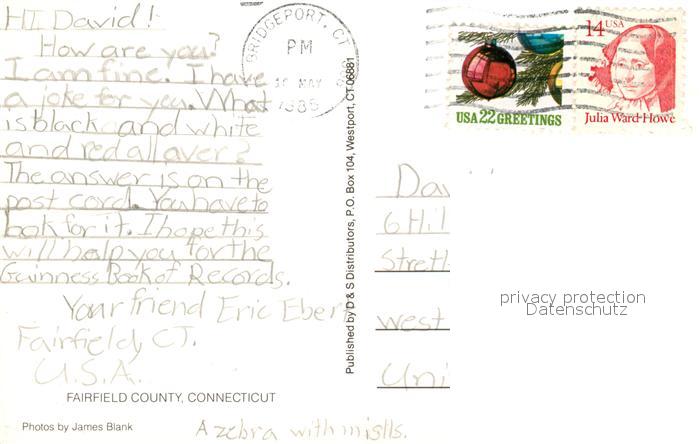 HI David!
How are you?
I am fine. I have
a joke for you. What
is black and white
and red all over?
The answer is on the
post card. You have to
look for it. I hope this
will help you for the
Guinness Book of Records.
Your friend Eric Ebert
Fairfield, CT.
U.S.A.
FAIRFIELD COUNTY, CONNECTICUT
Photos by James Blank
A zebra with mislls.
BRIDGEPORT, CT
PM
MAY
Published by D & S Distributors, P.O. Box 104, Westport, CT 06881
USA 22 GREETINGS
14 USA
Julia Ward Howe
6 Hil
Stret
West
Uni
privacy protection
Datenschutz